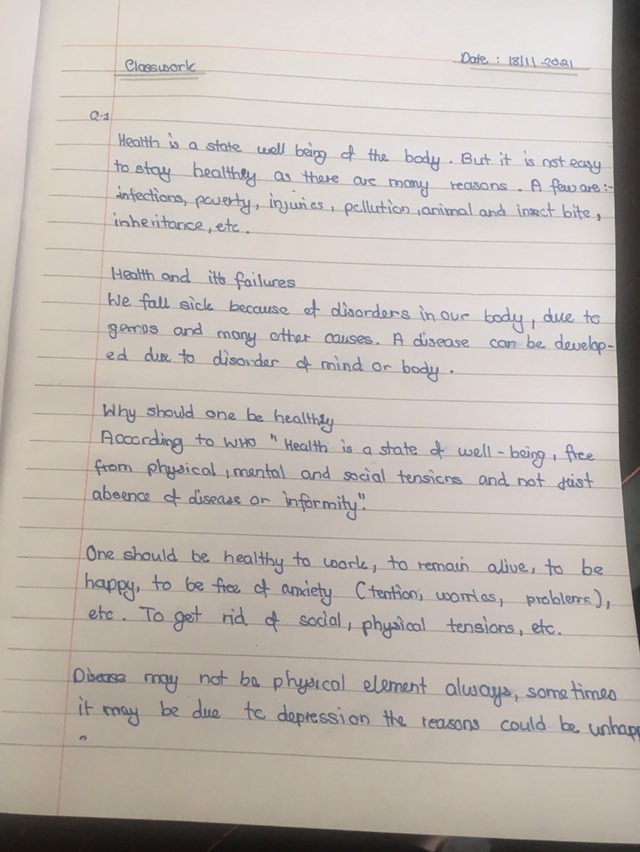 Classwork
Date : 18/11 2021
Q.1
Health is a state well being of the body. But it is not easy
to stay healthly as there are many reasons. A few are :-
infections, poverty, injuries, pollution, animal and insect bite,
inheritance, etc.
Health and its failures
We fall sick because of disorders in our body, due to
germs and many other causes. A disease can be develop-
ed due to disorder of mind or body.
Why should one be healthly
According to WHO "Health is a state of well-being, free
from physical, mental and social tensions and not just
absence of disease or informity".
One should be healthy to work, to remain alive, to be
happy, to be free of anxiety (tention, worries, problems),
etc. To get rid of social, physical tensions, etc.
Disease may not be physical element always, sometimes
it may be due to depression the reasons could be unhapp